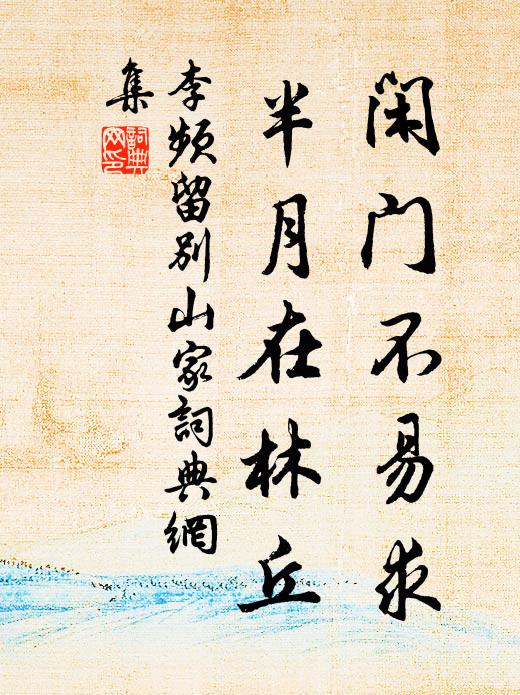 闲门不易求
半月在林丘
李频留别山家詞典網
集
詞典
网印